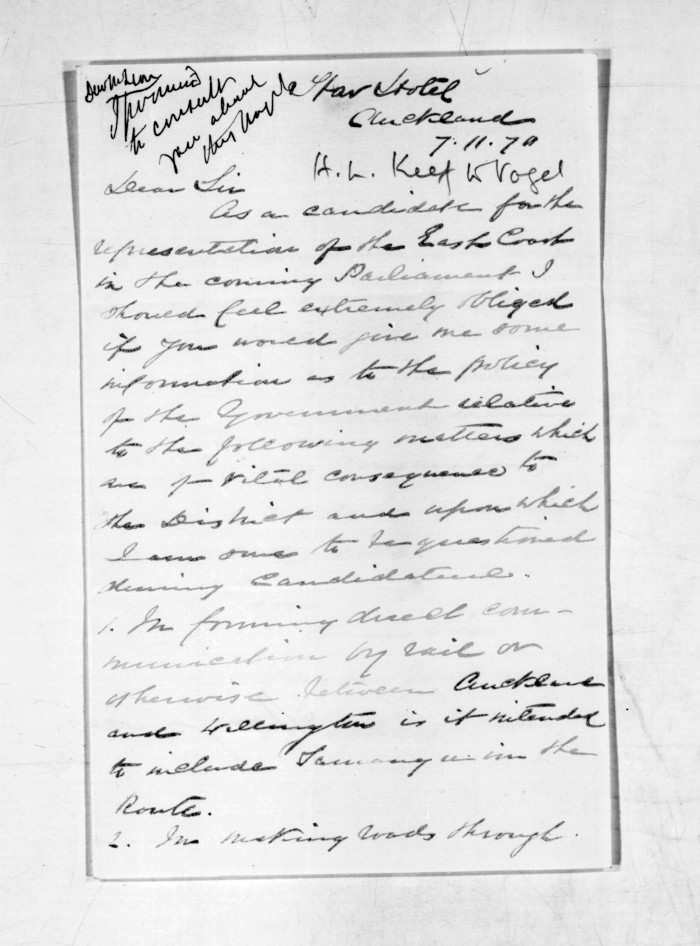 Dear McLean
I promised
to consult
you about
this Vogel
Star Hotel
Auckland
7.11.70
H. L. Keef to Vogel
Dear Sir
As a candidate for the
representation of the East Coast
in the coming Parliament I
should feel extremely obliged
if you would give me some
information as to the policy
of the Government relative
to the following matters which
are of vital consequence to
the District and upon which
I am sure to be questioned
during Candidature.
1. In forming direct com-
munication by rail or
otherwise between Auckland
and Wellington is it intended
to include in the
Route.
2. In making roads through